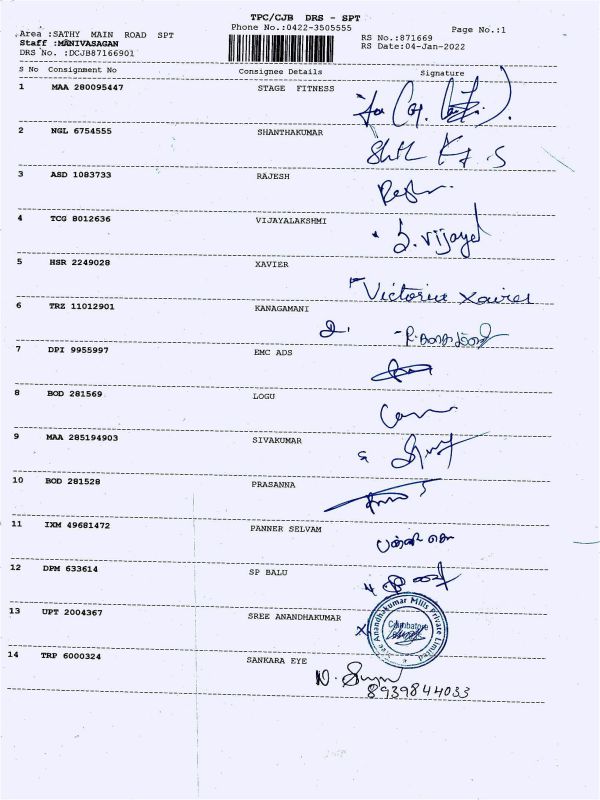 TPC/CJB DRS - SPT
Phone No.:0422-3505555
Page No.:1
Area :SATHY MAIN ROAD SPT
RS No.:871669
Staff :MANIVASAGAN
RS Date:04-Jan-2022
DRS No. :DCJB87166901
S No Consignment No Consignee Details Signature
1 MAA 280095447 STAGE FITNESS
2 NGL 6754555 SHANTHAKUMAR
3 ASD 1083733 RAJESH
4 TCG 8012636 VIJAYALAKSHMI
5 HSR 2249028 XAVIER
Victoria Xavier
6 TRZ 11012901 KANAGAMANI
7 DPI 9955997 EMC ADS
8 BOD 281569 LOGU
9 MAA 285194903 SIVAKUMAR
10 BOD 281528 PRASANNA
11 IXM 49681472 PANNER SELVAM
12 DPM 633614 SP BALU
13 UPT 2004367 SREE ANANDHAKUMAR
Sree Anandhakumar Mills Private Limited
Coimbatore
14 TRP 6000324 SANKARA EYE
8939844033